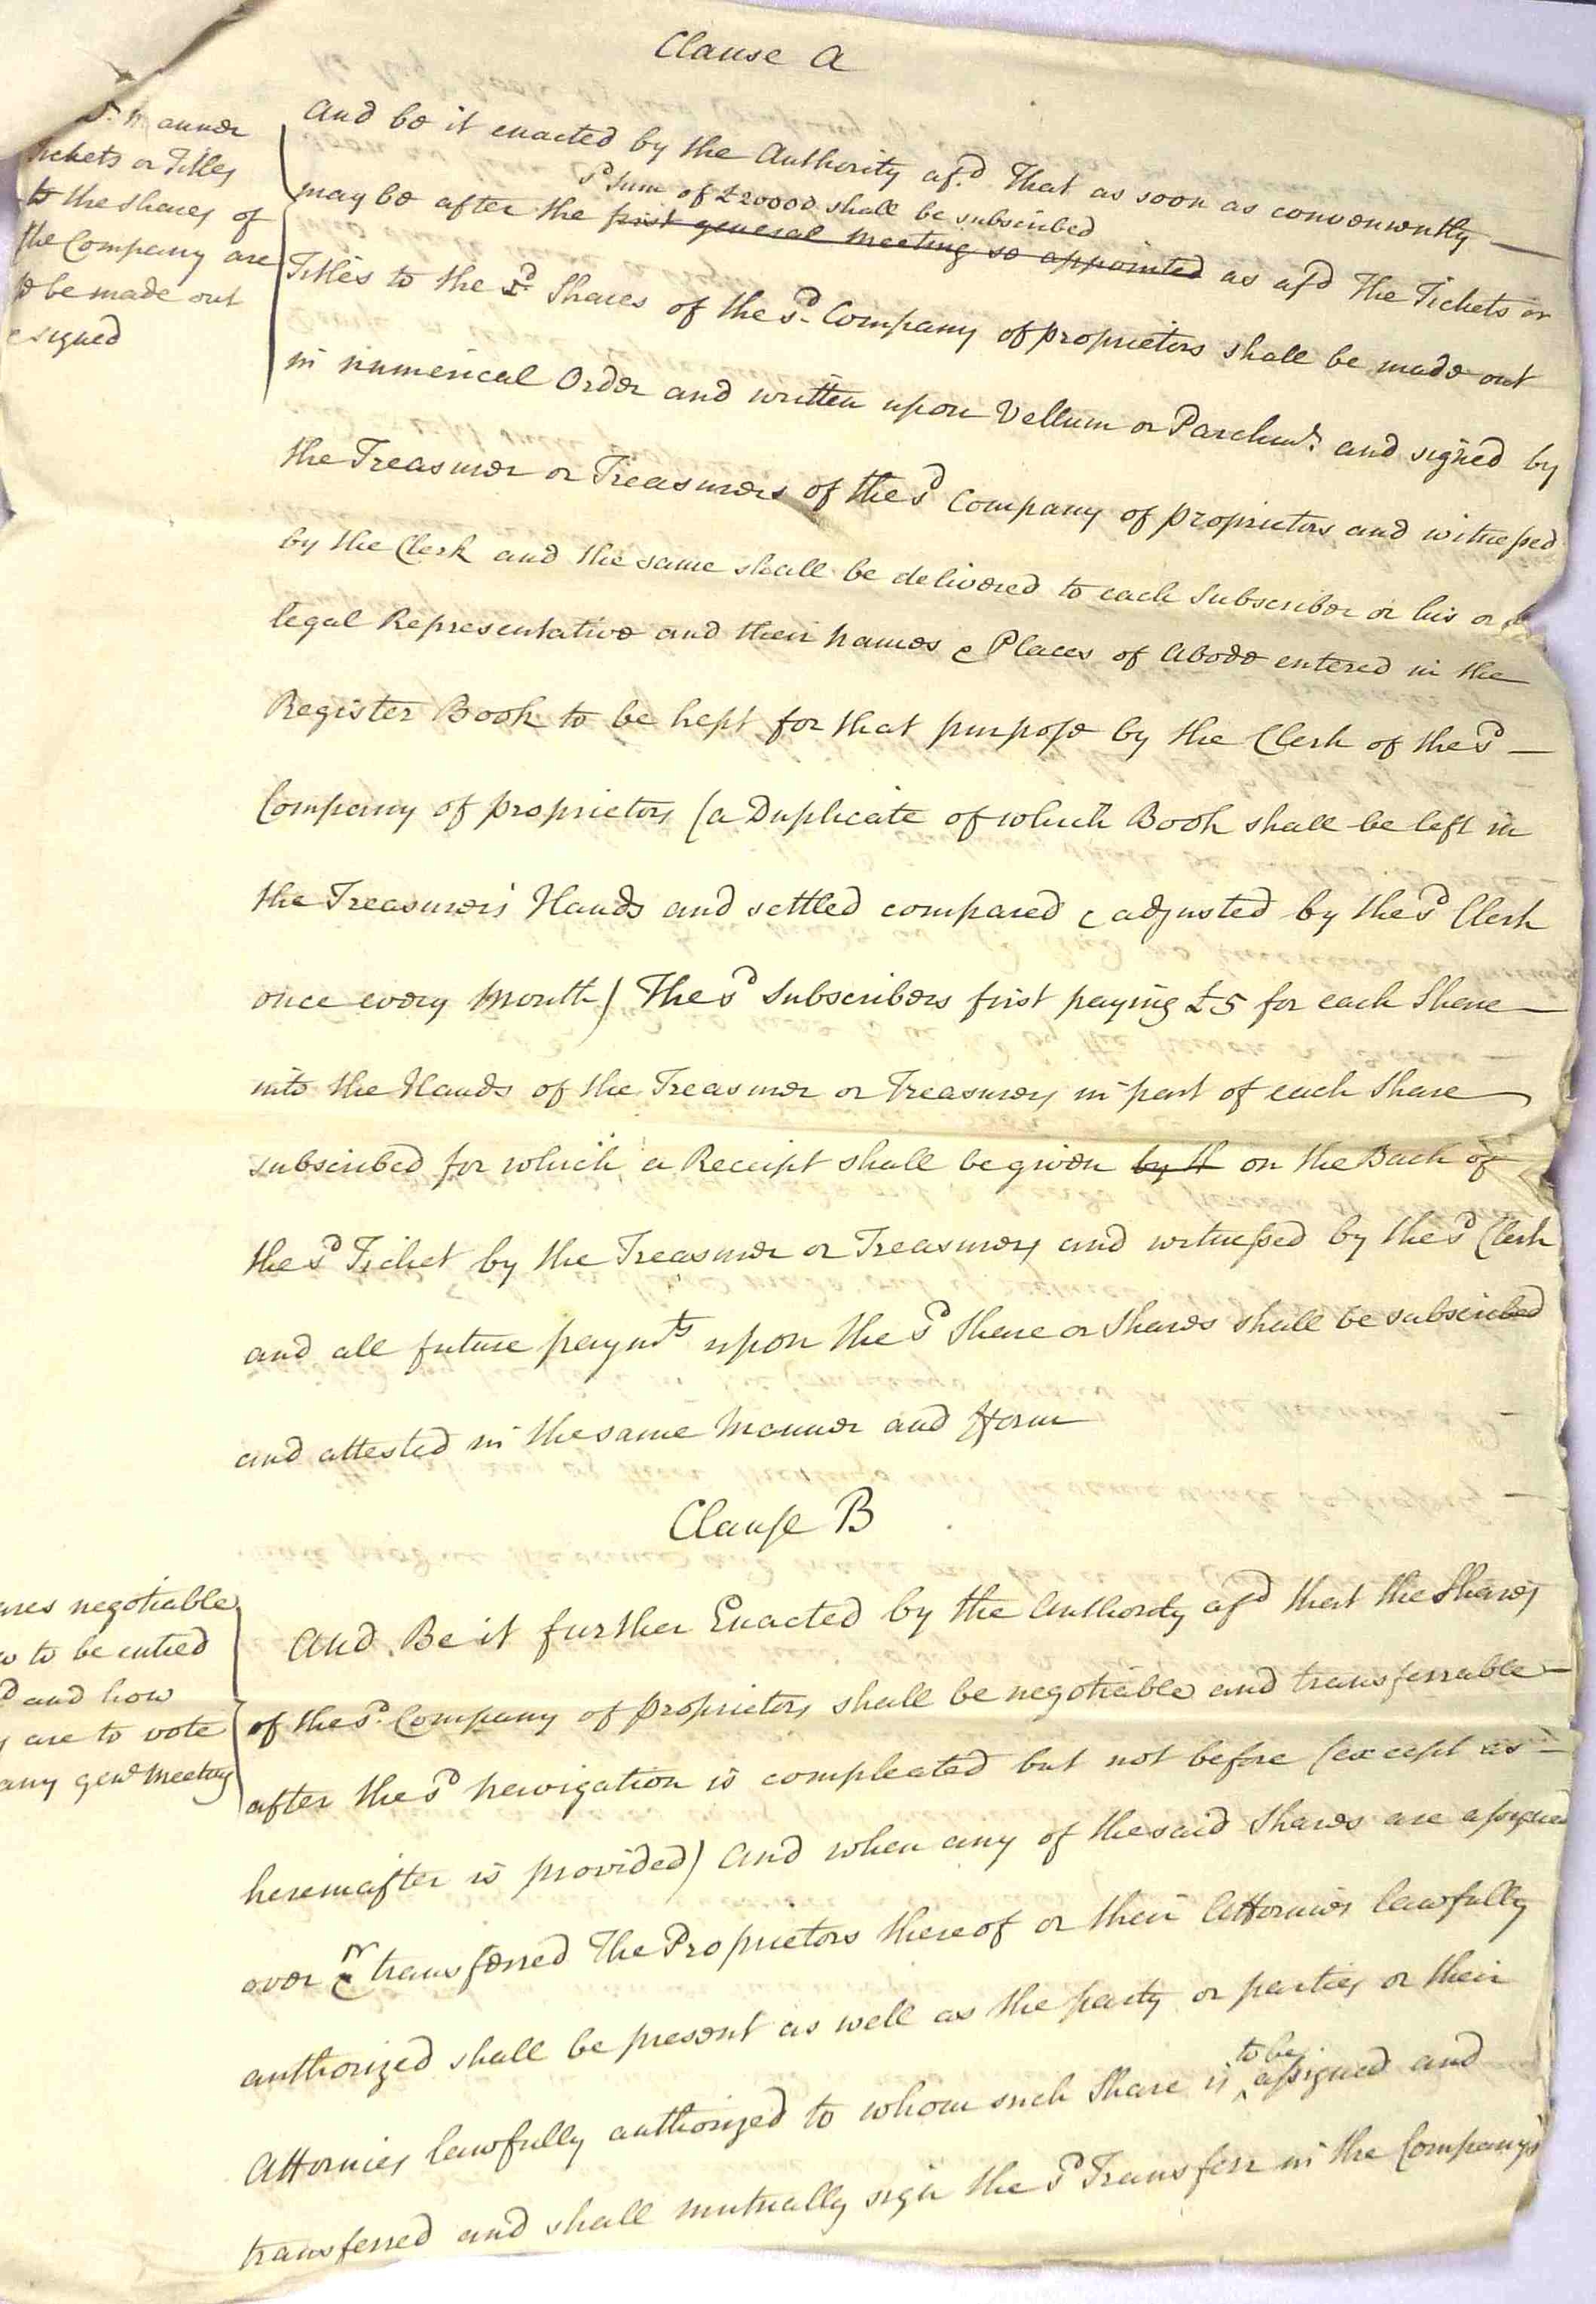 Clause A
anner
Tickets or Titles
to the Shares of
the Company are
to be made out
& signed
And be it enacted by the Authority afd. That as soon as conveniently
sd Sum of £20000 shall be subscribed
may be after the first general meeting so appointed as afd The Tickets or
Titles to the sd Shares of the sd. Company of proprietors shall be made out
in numerical Order and written upon Vellum or Parchmt. and signed by
the Treasurer or Treasurers of the sd Company of proprietors and witnessed
by the Clerk and the same shall be delivered to each Subscriber or his or
legal Representative and their names & Places of Abode entered in the
Register Book to be kept for that purpose by the Clerk of the sd
Company of proprietors (a Duplicate of which Book shall be left in
the Treasurers Hands and settled compared & adjusted by the sd Clerk
once every Month) The sd Subscribers first paying £5 for each Share
into the Hands of the Treasurer or Treasurers in part of each Share
subscribed for which a Receipt shall be given by th on the Back of
the sd Ticket by the Treasurer or Treasurers and witnessed by the sd Clerk
and all future paymts upon the sd Share or Shares shall be subscribed
and attested in the same Manner and fform
Clause B
ares negotiable
to be entred
and how
are to vote
any genl Meeting
And Be it further Enacted by the Authority afd that the Shares
of the sd. Company of proprietors shall be negotiable and transferrable
after the sd navigation is compleated but not before (except as
hereinafter is provided) And when any of the said Shares are assigned
over or & transferred The Proprietors thereof or their Attornies lawfully
authorized shall be present as well as the party or parties or their
to be
Attornies lawfully authorized to whom such Share is ^ assigned and
transferred and shall mutually sign the sd Transfer in the Company's